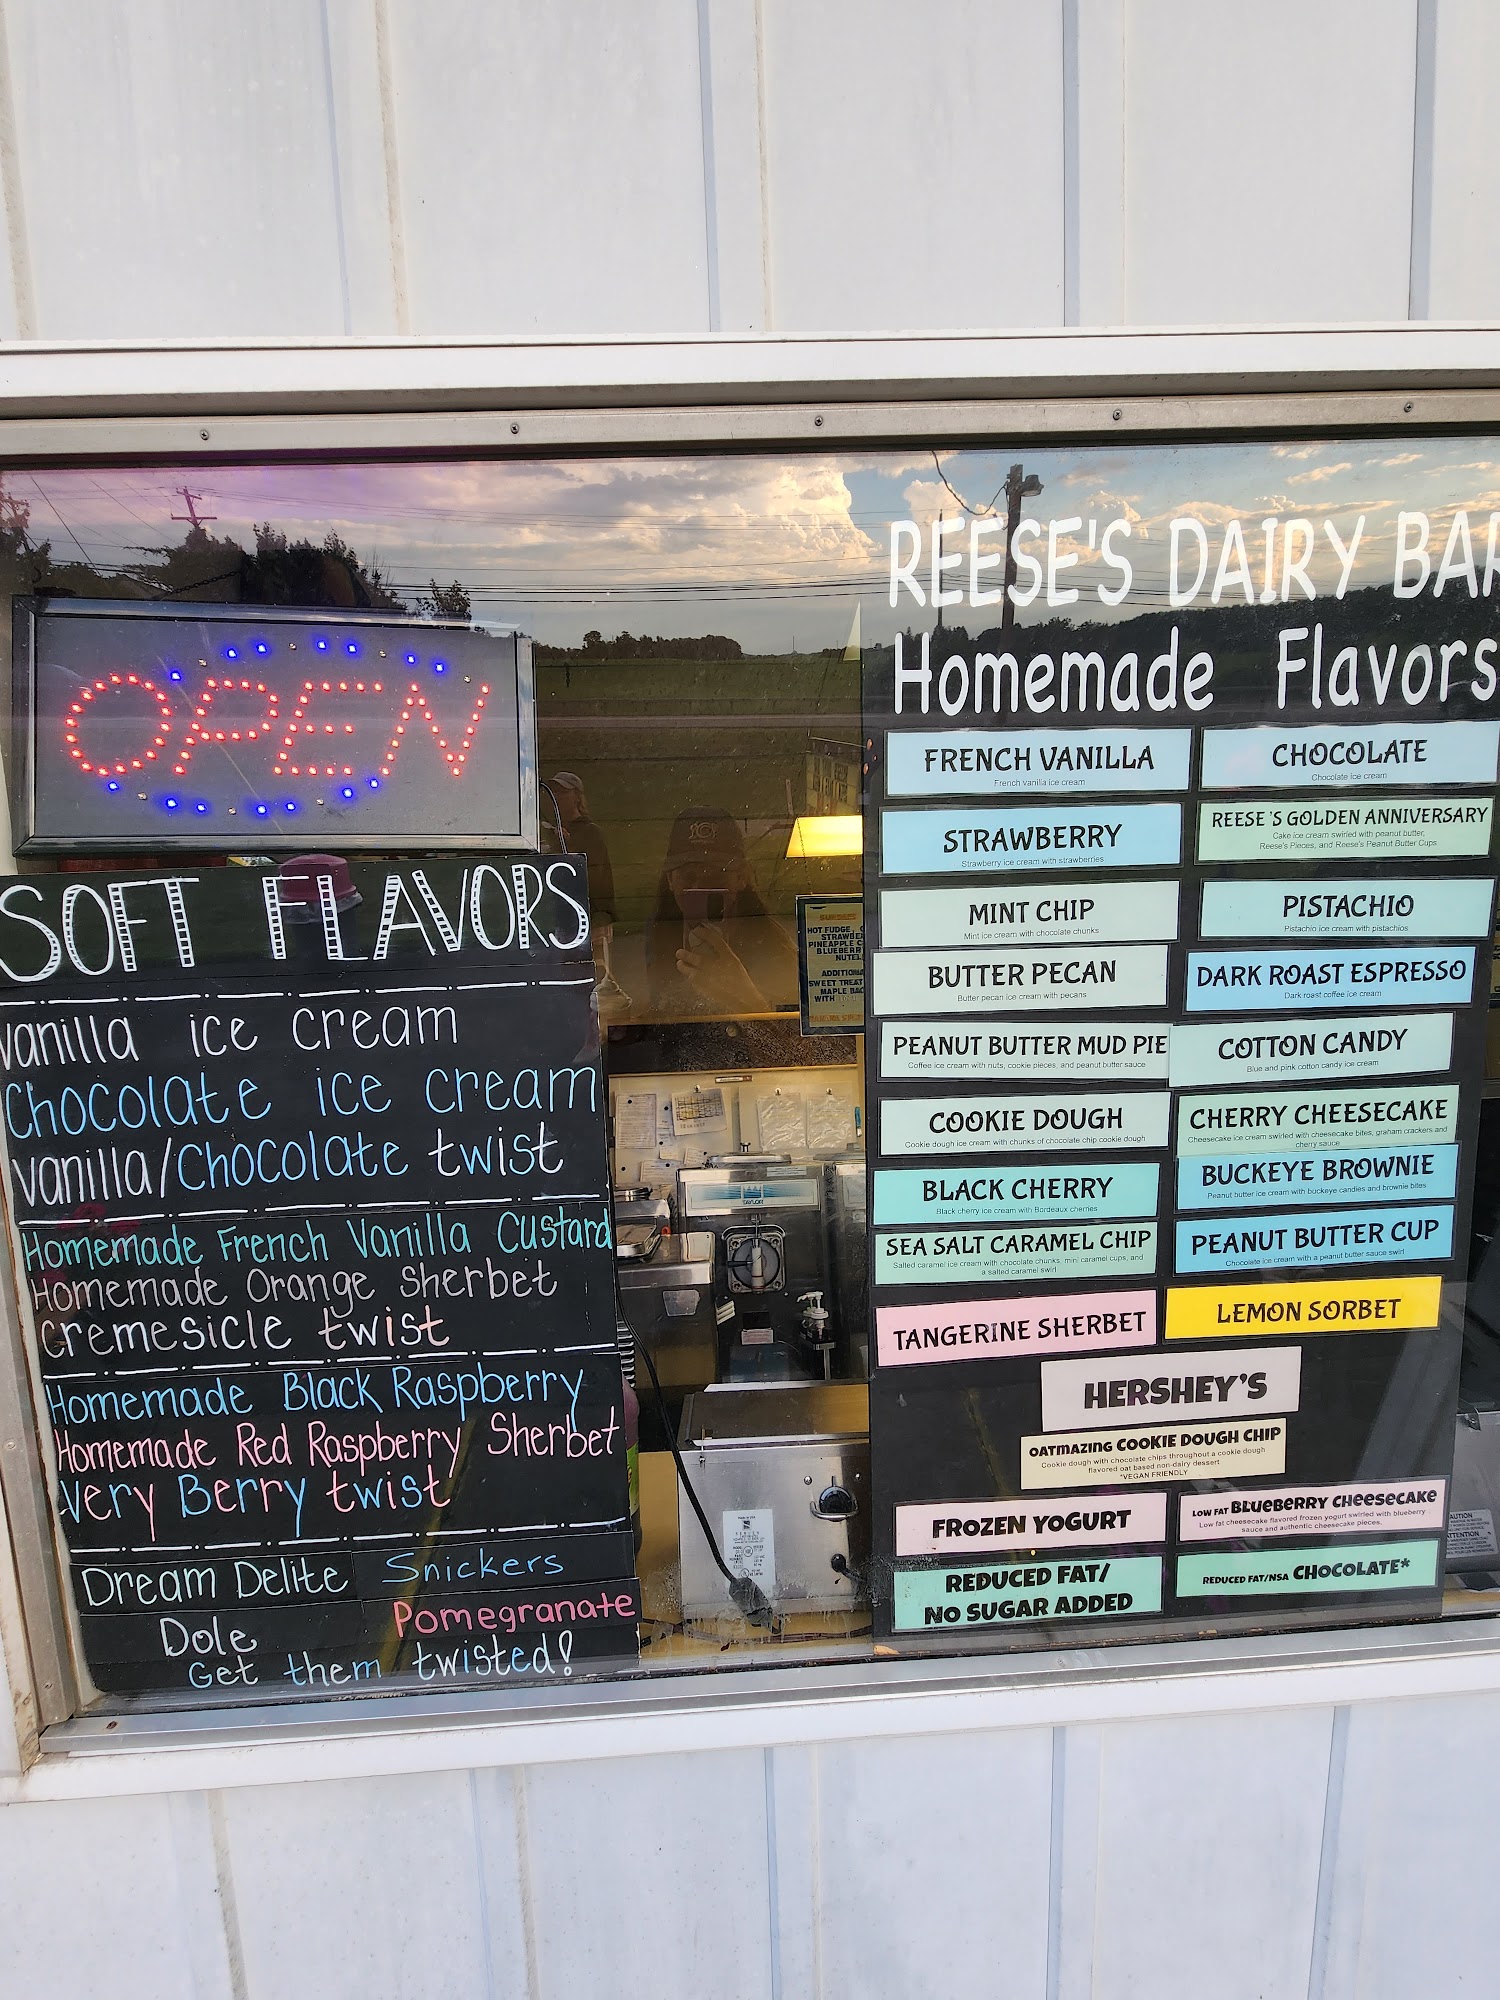 OPEN
SOFT FLAVORS
Vanilla ice cream
Chocolate ice cream
Vanilla/Chocolate twist
Homemade French Vanilla Custard
Homemade Orange Sherbet
Cremesicle twist
Homemade Black Raspberry
Homemade Red Raspberry Sherbet
Very Berry twist
Dream Delite Snickers
Dole Pomegranate
Get them twisted!
REESE'S DAIRY BAR
Homemade Flavors
FRENCH VANILLA
French vanilla ice cream
CHOCOLATE
Chocolate ice cream
STRAWBERRY
Strawberry ice cream with strawberries
REESE'S GOLDEN ANNIVERSARY
Cake ice cream swirled with peanut butter,
Reese's Pieces, and Reese's Peanut Butter Cups
MINT CHIP
Mint ice cream with chocolate chunks
PISTACHIO
Pistachio ice cream with pistachios
BUTTER PECAN
Butter pecan ice cream with pecans
DARK ROAST ESPRESSO
Dark roast coffee ice cream
PEANUT BUTTER MUD PIE
Coffee ice cream with nuts, cookie pieces, and peanut butter sauce
COTTON CANDY
Blue and pink cotton candy ice cream
COOKIE DOUGH
Cookie dough ice cream with chunks of chocolate chip cookie dough
CHERRY CHEESECAKE
Cheesecake ice cream swirled with cheesecake bites, graham crackers and
cherry sauce
BLACK CHERRY
Black cherry ice cream with Bordeaux cherries
BUCKEYE BROWNIE
Peanut butter ice cream with buckeye candies and brownie bites
SEA SALT CARAMEL CHIP
Salted caramel ice cream with chocolate chunks, mini caramel cups, and
a salted caramel swirl
PEANUT BUTTER CUP
Chocolate ice cream with a peanut butter sauce swirl
TANGERINE SHERBET
LEMON SORBET
HERSHEY'S
OATMAZING COOKIE DOUGH CHIP
Cookie dough with chocolate chips throughout a cookie dough
flavored oat based non-dairy dessert
*VEGAN FRIENDLY
FROZEN YOGURT
LOW FAT BLUEBERRY CHEESECAKE
Low fat cheesecake flavored frozen yogurt swirled with blueberry
sauce and authentic cheesecake pieces.
REDUCED FAT/
NO SUGAR ADDED
REDUCED FAT/NSA CHOCOLATE*
SUNDAES
HOT FUDGE,
PINEAPPLE
SWEET TREAT
WITH
TAYLOR